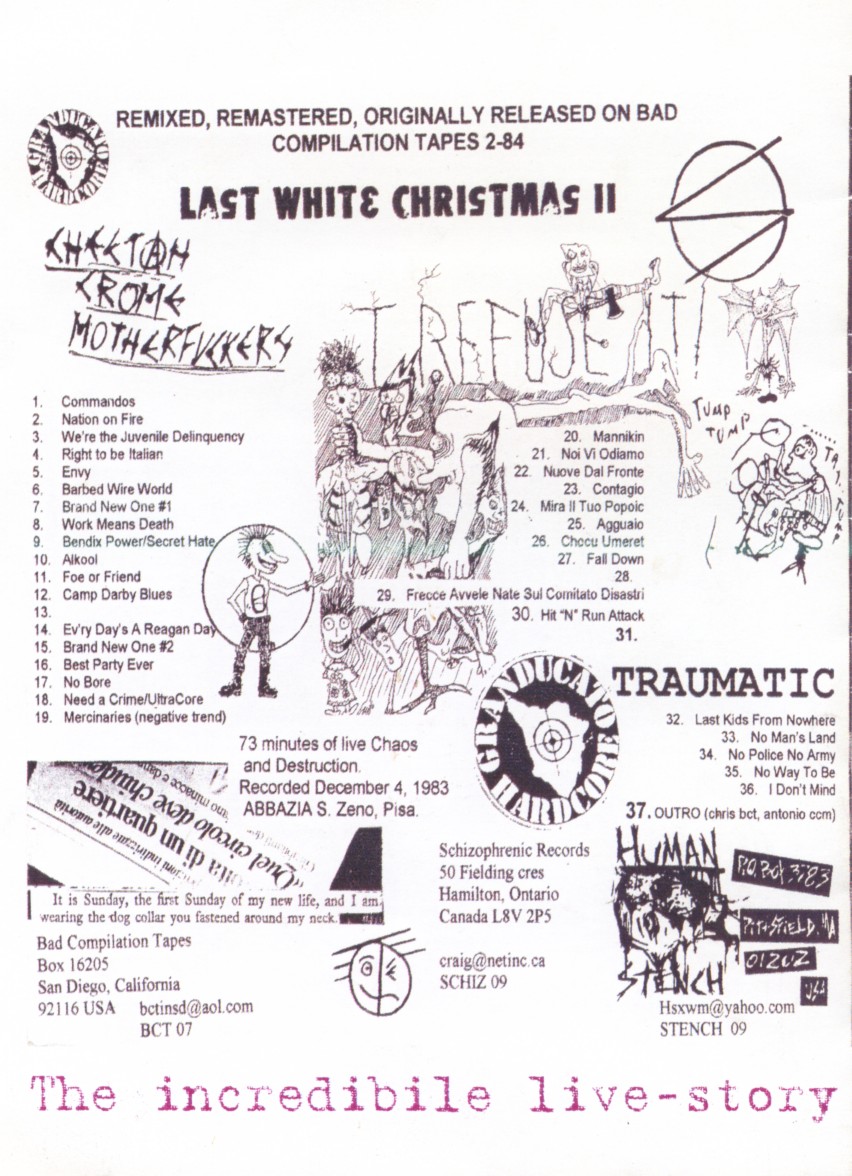 REMIXED, REMASTERED, ORIGINALLY RELEASED ON BAD
COMPILATION TAPES 2-84
GRANDUCATO
HARDCORE
LAST WHITE CHRISTMAS II
CHEETAH
CROME
MOTHERFUCKERS
I REFUSE IT!
TUMP
TUMP
1. Commandos
2. Nation on Fire
3. We're the Juvenile Delinquency
4. Right to be Italian
5. Envy
6. Barbed Wire World
7. Brand New One #1
8. Work Means Death
9. Bendix Power/Secret Hate
10. Alkool
11. Foe or Friend
12. Camp Darby Blues
13.
14. Ev'ry Day's A Reagan Day
15. Brand New One #2
16. Best Party Ever
17. No Bore
18. Need a Crime/UltraCore
19. Mercinaries (negative trend)
20. Mannikin
21. Noi Vi Odiamo
22. Nuove Dal Fronte
23. Contagio
24. Mira Il Tuo Popoic
25. Agguaio
26. Chocu Umeret
27. Fall Down
28.
29. Frecce Avvele Nate Sul Comitato Disastri
30. Hit "N" Run Attack
31.
GRANDUCATO
HARDCORE
TRAUMATIC
32. Last Kids From Nowhere
33. No Man's Land
34. No Police No Army
35. No Way To Be
36. I Don't Mind
37. OUTRO (chris bct, antonio ccm)
73 minutes of live Chaos
and Destruction.
Recorded December 4, 1983
ABBAZIA S. Zeno, Pisa.
di un quartiere
Quel circolo deve chiudere
It is Sunday, the first Sunday of my new life, and I am
wearing the dog collar you fastened around my neck.
Bad Compilation Tapes
Box 16205
San Diego, California
92116 USA bctinsd@aol.com
BCT 07
Schizophrenic Records
50 Fielding cres
Hamilton, Ontario
Canada L8V 2P5
craig@netinc.ca
SCHIZ 09
HUMAN
STENCH
P.O. BOX 3583
PITTSFIELD, MA
01202
USA
Hsxwm@yahoo.com
STENCH 09
The incredibile live-story